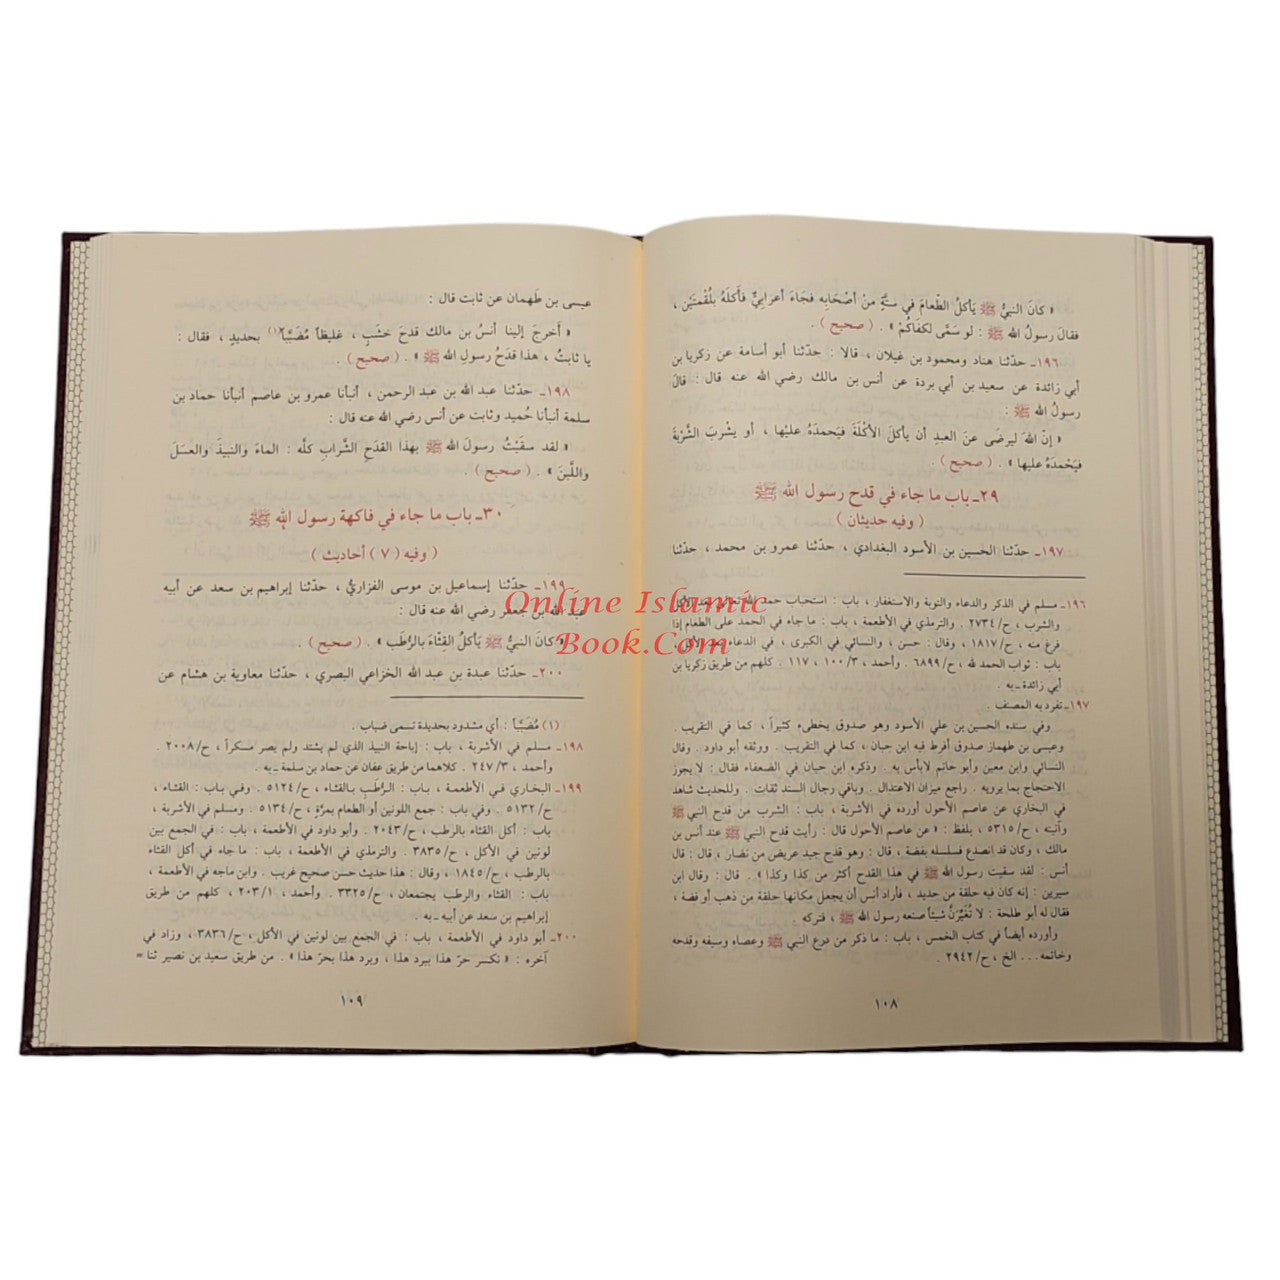 « كانَ النبيُّ ﷺ يَأكلُ الطّعامَ في ستَّةٍ مِنْ أصْحَابِه فجَاءَ أعرابيٌّ فَأكَلَهُ بلُقْمَتَيْنِ ،
فقالَ رسولُ الله ﷺ : لو سَمَّى لكفَاكُمْ » . ( صحيح ) .
١٩٦ـ حدّثنا هناد ومحمود بن غيلان ، قالا : حدّثنا أبو أسامة عن زكريا بن
أبي زائدة عن سعيد بن أبي بردة عن أنس بن مالك رضي الله عنه قال : قالَ
رسولُ الله ﷺ :
« إنّ اللهَ ليرضَى عنَ العبدِ أن يأكلَ الأكْلَةَ فيَحمدَهُ عليْها ، أو يشْربَ الشَّرْبةَ
فيَحْمدَهُ عليها » . ( صحيح ) .
٢٩ـ باب ما جاء في قدح رسول الله ﷺ
( وفيه حديثان )
١٩٧ـ حدّثنا الحسين بن الأسود البغدادي ، حدّثنا عمرو بن محمد ، حدّثنا
١٩٦ـ مسلم في الذكر والدعاء والتوبة والاستغفار ، باب : استحباب حمد الله تعالى بعد الأكل
والشرب ، ح/٢٧٣٤ . والترمذي في الأطعمة ، باب : ما جاء في الحمد على الطعام إذا
فرغ منه ، ح/١٨١٧ ، وقال : حسن ، والنسائي في الكبرى ، في الدعاء بعد الأكل ،
باب : ثواب الحمد لله ، ح/٦٨٩٩ . وأحمد ، ١٠٠/٣ ، ١١٧ . كلهم من طريق زكريا بن
أبي زائدة ـ به .
١٩٧ـ تفرد به المصنف .
وفي سنده الحسين بن علي الأسود وهو صدوق يخطىء كثيراً ، كما في التقريب .
وعيسى بن طهماز صدوق أفرط فيه ابن حبان ، كما في التقريب . ووثقه أبو داود . وقال
النسائي وابن معين وأبو حاتم لابأس به . وذكره ابن حبان في الضعفاء فقال : لا يجوز
الاحتجاج بما يرويه . راجع ميزان الاعتدال . وباقي رجال السند ثقات . وللحديث شاهد
في البخاري عن عاصم الأحول أورده في الأشربة ، باب : الشرب من قدح النبي ﷺ
وآنيته ، ح/٥٣١٥ ، بلفظ : « عن عاصم الأحول قال : رأيت قدح النبي ﷺ عند أنس بن
مالك ، وكان قد انصدع فسلسله بفضة ، قال : وهو قدح جيد عريض من نضار ، قال : قال
أنس : لقد سقيت رسول الله ﷺ في هذا القدح أكثر من كذا وكذا » . قال : وقال ابن
سيرين : إنه كان فيه حلقة من حديد ، فأراد أنس أن يجعل مكانها حلقة من ذهب أو فضة ،
فقال له أبو طلحة : لا تُغَيِّرَنَّ شيئاً صنعه رسول الله ﷺ ، فتركه .
وأورده أيضاً في كتاب الخمس ، باب : ما ذكر من درع النبي ﷺ وعصاه وسيفه وقدحه
وخاتمه . . . الخ ، ح/٢٩٤٢ .
١٠٨
عيسى بن طَهمان عن ثابت قال :
« أخرجَ إلينا أنسُ بن مالك قدحَ خشَبٍ ، غليظاً مُضَبَّباً(١) بحديدٍ ، فقال :
يا ثابتُ ، هذا قدَحُ رسولِ الله ﷺ » . ( صحيح ) .
١٩٨ـ حدّثنا عبد الله بن عبد الرحمن ، أنبأنا عمرو بن عاصم أنبأنا حماد بن
سلمة أنبأنا حُميد وثابت عن أنس رضي الله عنه قال :
« لقد سقَيْتُ رسولَ الله ﷺ بهذا القدَحِ الشَّرابَ كلَّه : الماءَ والنبيذَ والعسَلَ
واللَّبنَ » . ( صحيح ) .
٣٠ـ باب ما جاء في فاكهة رسول الله ﷺ
( وفيه ( ٧ ) أحاديث )
١٩٩ـ حدّثنا إسماعيل بن موسى الفزاريُّ ، حدّثنا إبراهيم بن سعد عن أبيه
عن عبد الله بن جعفر رضي الله عنه قال :
« كانَ النبيُّ ﷺ يَأكلُ القِثّاءَ بالرُّطَب » . ( صحيح ) .
٢٠٠ـ حدّثنا عبدة بن عبد الله الخزاعي البصري ، حدّثنا معاوية بن هشام عن
(١) مُضَبَّباً : أي مشدود بحديدة تسمى ضباب .
١٩٨ـ مسلم في الأشربة ، باب : إباحة النبيذ الذي لم يشتد ولم يصر مسكراً ، ح/٢٠٠٨ .
وأحمد ، ٢٤٧/٣ . كلاهما من طريق عفان عن حماد بن سلمة ـ به .
١٩٩ـ البخاري في الأطعمة ، باب : الرُّطبِ بالقثاء ، ح/٥١٢٤ . وفي باب : القثاء ،
ح/٥١٣٢ . وفي باب : جمع اللونين أو الطعام بمرَّة ، ح/٥١٣٤ . ومسلم في الأشربة ،
باب : أكل القثاء بالرطب ، ح/٢٠٤٣ . وأبو داود في الأطعمة ، باب : في الجمع بين
لونين في الأكل ، ح/٣٨٣٥ . والترمذي في الأطعمة ، باب : ما جاء في أكل القثاء
بالرطب ، ح/١٨٤٥ ، وقال : هذا حديث حسن صحيح غريب . وابن ماجه في الأطعمة ،
باب : القثاء والرطب يجتمعان ، ح/٣٣٢٥ . وأحمد ، ٢٠٣/١ ، كلهم من طريق
إبراهيم بن سعد عن أبيه ـ به .
٢٠٠ـ أبو داود في الأطعمة ، باب : في الجمع بين لونين في الأكل ، ح/٣٨٣٦ ، وزاد في
آخره : « نكسر حرّ هذا ببرد هذا ، وبرد هذا بحرّ هذا » . من طريق سعيد بن نصير ثنا =
١٠٩
Online Islamic
Book.Com